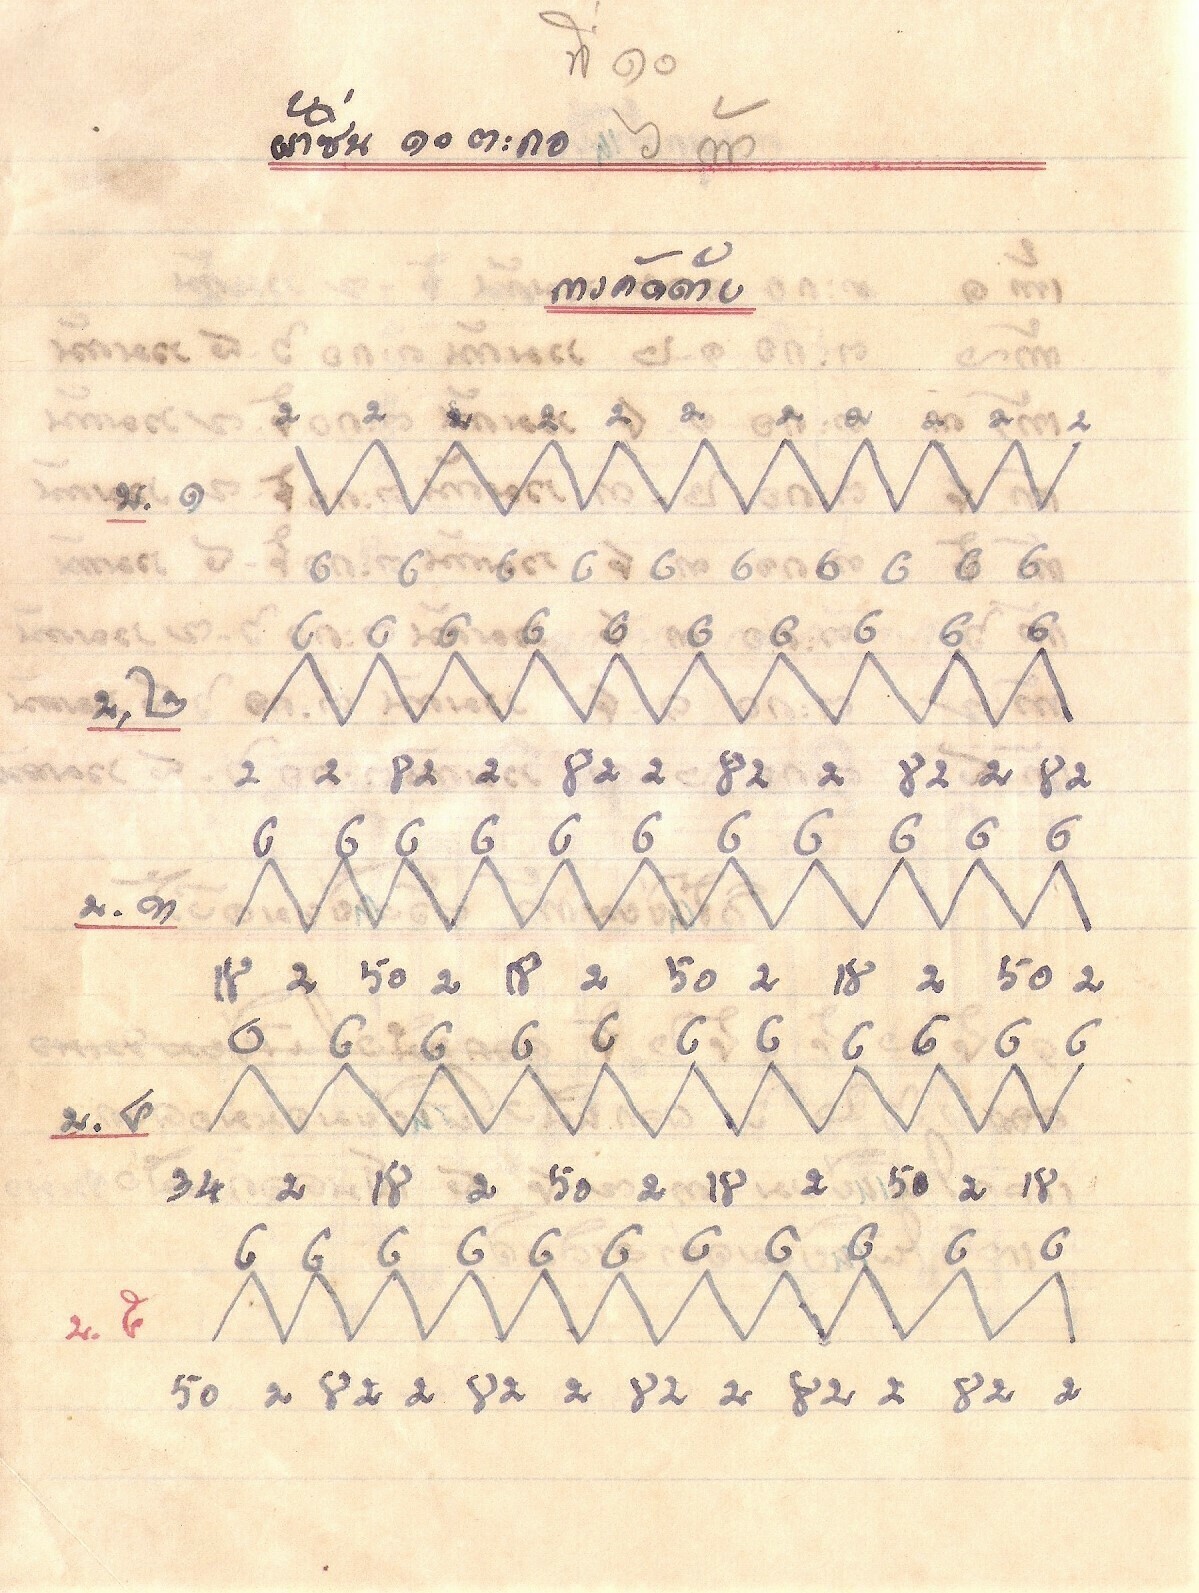 ที่ ๑๐
ผ้าซิ่น ๑๐ ตะกอ
การคัดด้าย
2 2 2 2 2 2 2 2 2 2 2
ม. ๑
6 6 6 6 6 6 6 6 6 6
6 6 6 6 6 6 6 6 6 6
ม. ๒
2 2 82 2 82 2 82 2 82 2 82
6 6 6 6 6 6 6 6 6 6 6
ม. ๓
18 2 50 2 18 2 50 2 18 2 50 2
6 6 6 6 6 6 6 6 6 6 6
ม. ๔
34 2 18 2 50 2 18 2 50 2 18
6 6 6 6 6 6 6 6 6 6 6
ม. ๕
50 2 82 2 82 2 82 2 82 2 82 2